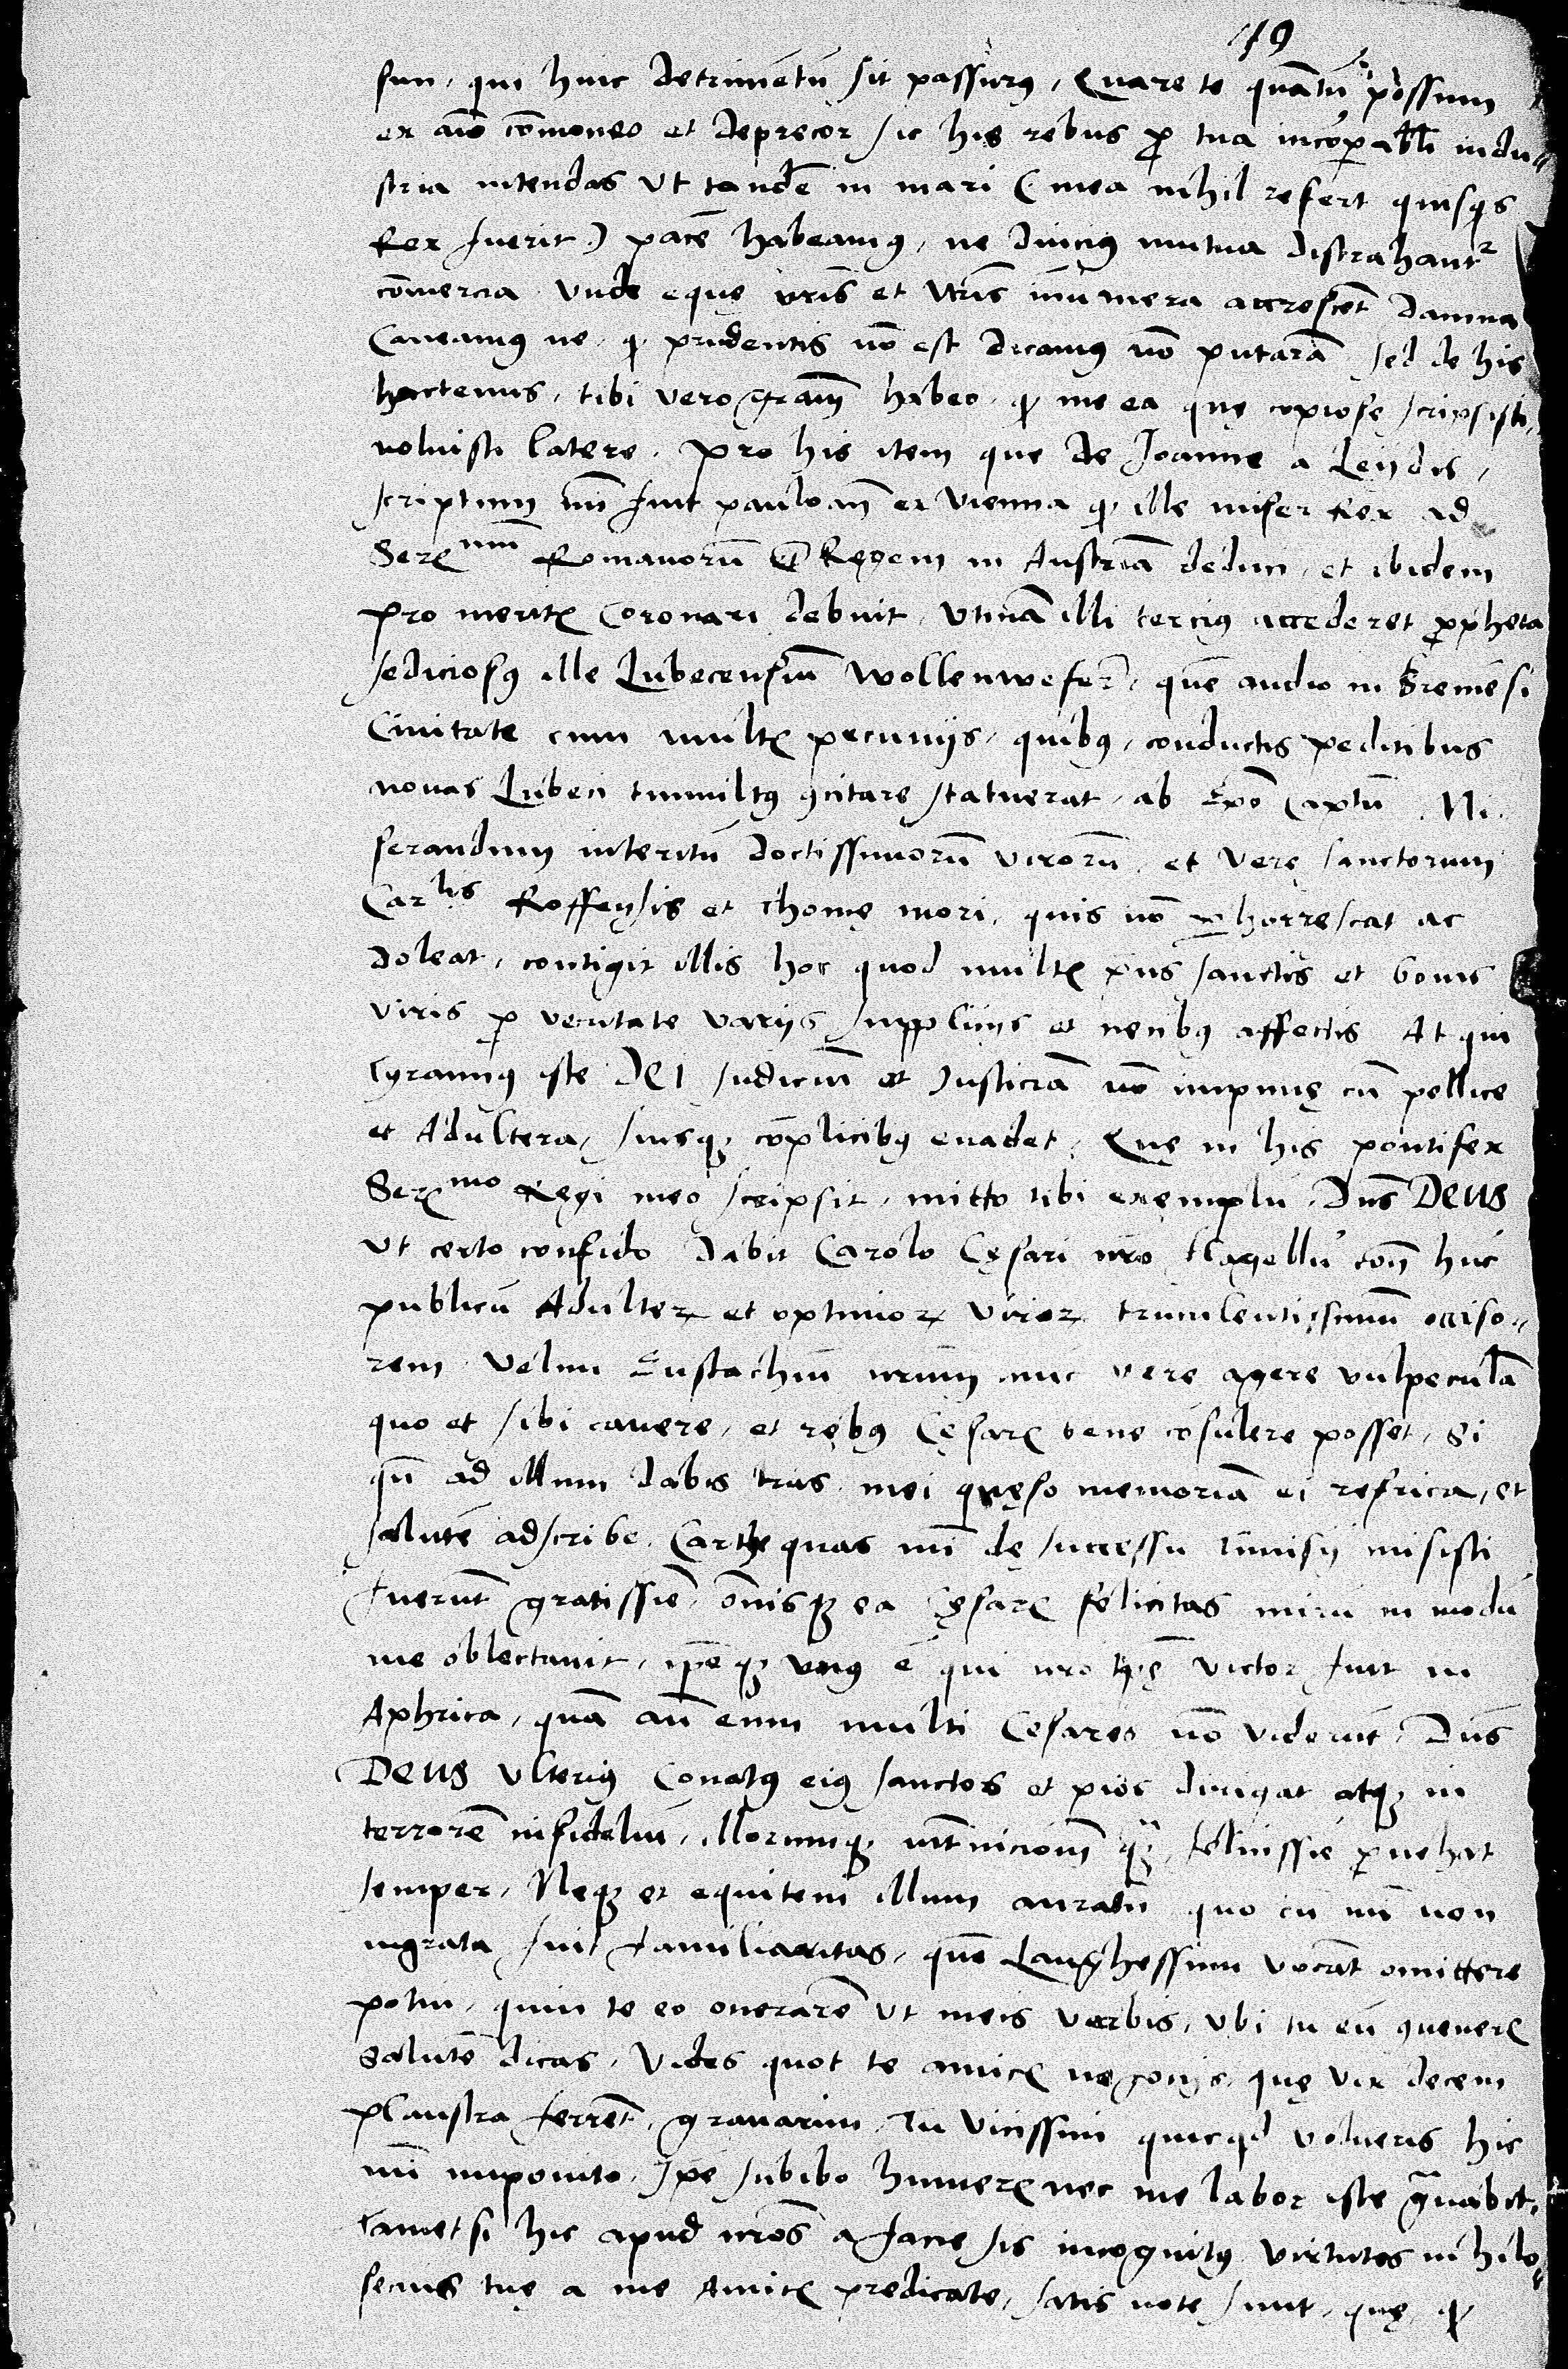 79
sun, qui hinc detrimētū sit passurꝯ, Quare te quātū possum
ex aīo cōmoneo et deprecor sic his rebus ꝓ tua incōparabli indu⸗
stria intendas ut tandē in mari (mea nihil refert quisqs
Rex fuerit) pacē habeamꝯ, ne diuciꝯ mutua distrahantr
cōmercia, unde equę uris et nris innumera accrescēt damna
Caueamꝯ ne, qͥ prudentis nō est dicamꝯ nō putarā, sed de his
hactenus, tibi vero grām habeo, qͥ me ea quę copiose scripsisti,
noluisti latere. Pro his item que de Joanne a Leydis,
scriptum mī fuit paulo añ ex Vienna qͥ ille miser Rex ad
Serꝭ mū Romanorū Regem in Austriā deduci, et ibidem
pro meritꝭ Coronari debuit, Utinā illi terciꝯ accederet ꝓpheta
sediciosꝯ ille Lubecensiū Wollenwefer, quē audio in Bremēsi
Ciuitate cum multꝭ pecunijs, quibꝯ, conductis peditibus
nouas Lubeci tumultꝯ ꝯcitare statuerat, ab Epō captū. Mi
serandum interitū doctissimorū virorū, et verę sanctorum
Carlis Roffensis et Thomę mori, quis nō ꝑhorrescat ac
doleat, contigit illis hoc quod multꝭ pus sanctis et bonis
viris ꝓ veritate varijs supplicijs et necibꝯ affectis At qui
Tyrannꝯ iste DEI Iudiciū et Iusticiā nō impunę cū pellice
et Adultera, suisqꝫ cōplicibꝯ euadet, Quę in his pontifex
Serꝭ mo Regi meo scripsit, mitto tibi exemplū. Dns DEUS
ut certo confido dabit Carolo Cęsari nrō flagellū coñ hūc
publicū Adulterꝝ et optimorꝝ virorꝝ truculentissimū occiso⸗
rem. Velim Eustachiū nrūm nūc vere agere vulpeculā
quo et sibi cauere, et rębꝯ Cęsarꝭ bene cōsulere posset, Si
qñ ad illum dabis lras, mei quęso memoriā ei refrica, et
salutē adscribe. Carthe quas mī dę successu Tunisij misisti
fuerūt gratissīe, ōnisqꝫ ea Cęsarꝭ felicitas mirū in modū
me oblectauit, ipēqꝫ unꝯ ē qui nrō tpę victor fuit in
Aphrica, quā añ eum multi Cesares nō viderūt, Dns
DEUS ulteriꝯ Conatꝯ eiꝯ sanctos et pios dirigat atqꝫ in
terrorē infideliū, illorumqꝫ felicissīe ꝓuehat
semper, Neqꝫ et equitem illum auratū quo cū mī non
ingrata fuit familiaritas, quē Langhessium vocāt omittere
potui, quin te eo onerarē ut meis verbis, ubi tu eū ꝯueneris
salutē dicas. Vides quot te amicꝭ negocijs, quę vix decem
plaustra ferrēt, grauarim, Tu vicissim quicqd volueris hic
mī imponito, Ipe subibo humerꝭ nec me labor iste grauabit,
tametsi hic apud nros a facie sis incognitꝯ virtutes nihilo⸗
secius tuę a me Amicꝭ predicate, satis note sunt, quę, qͥ